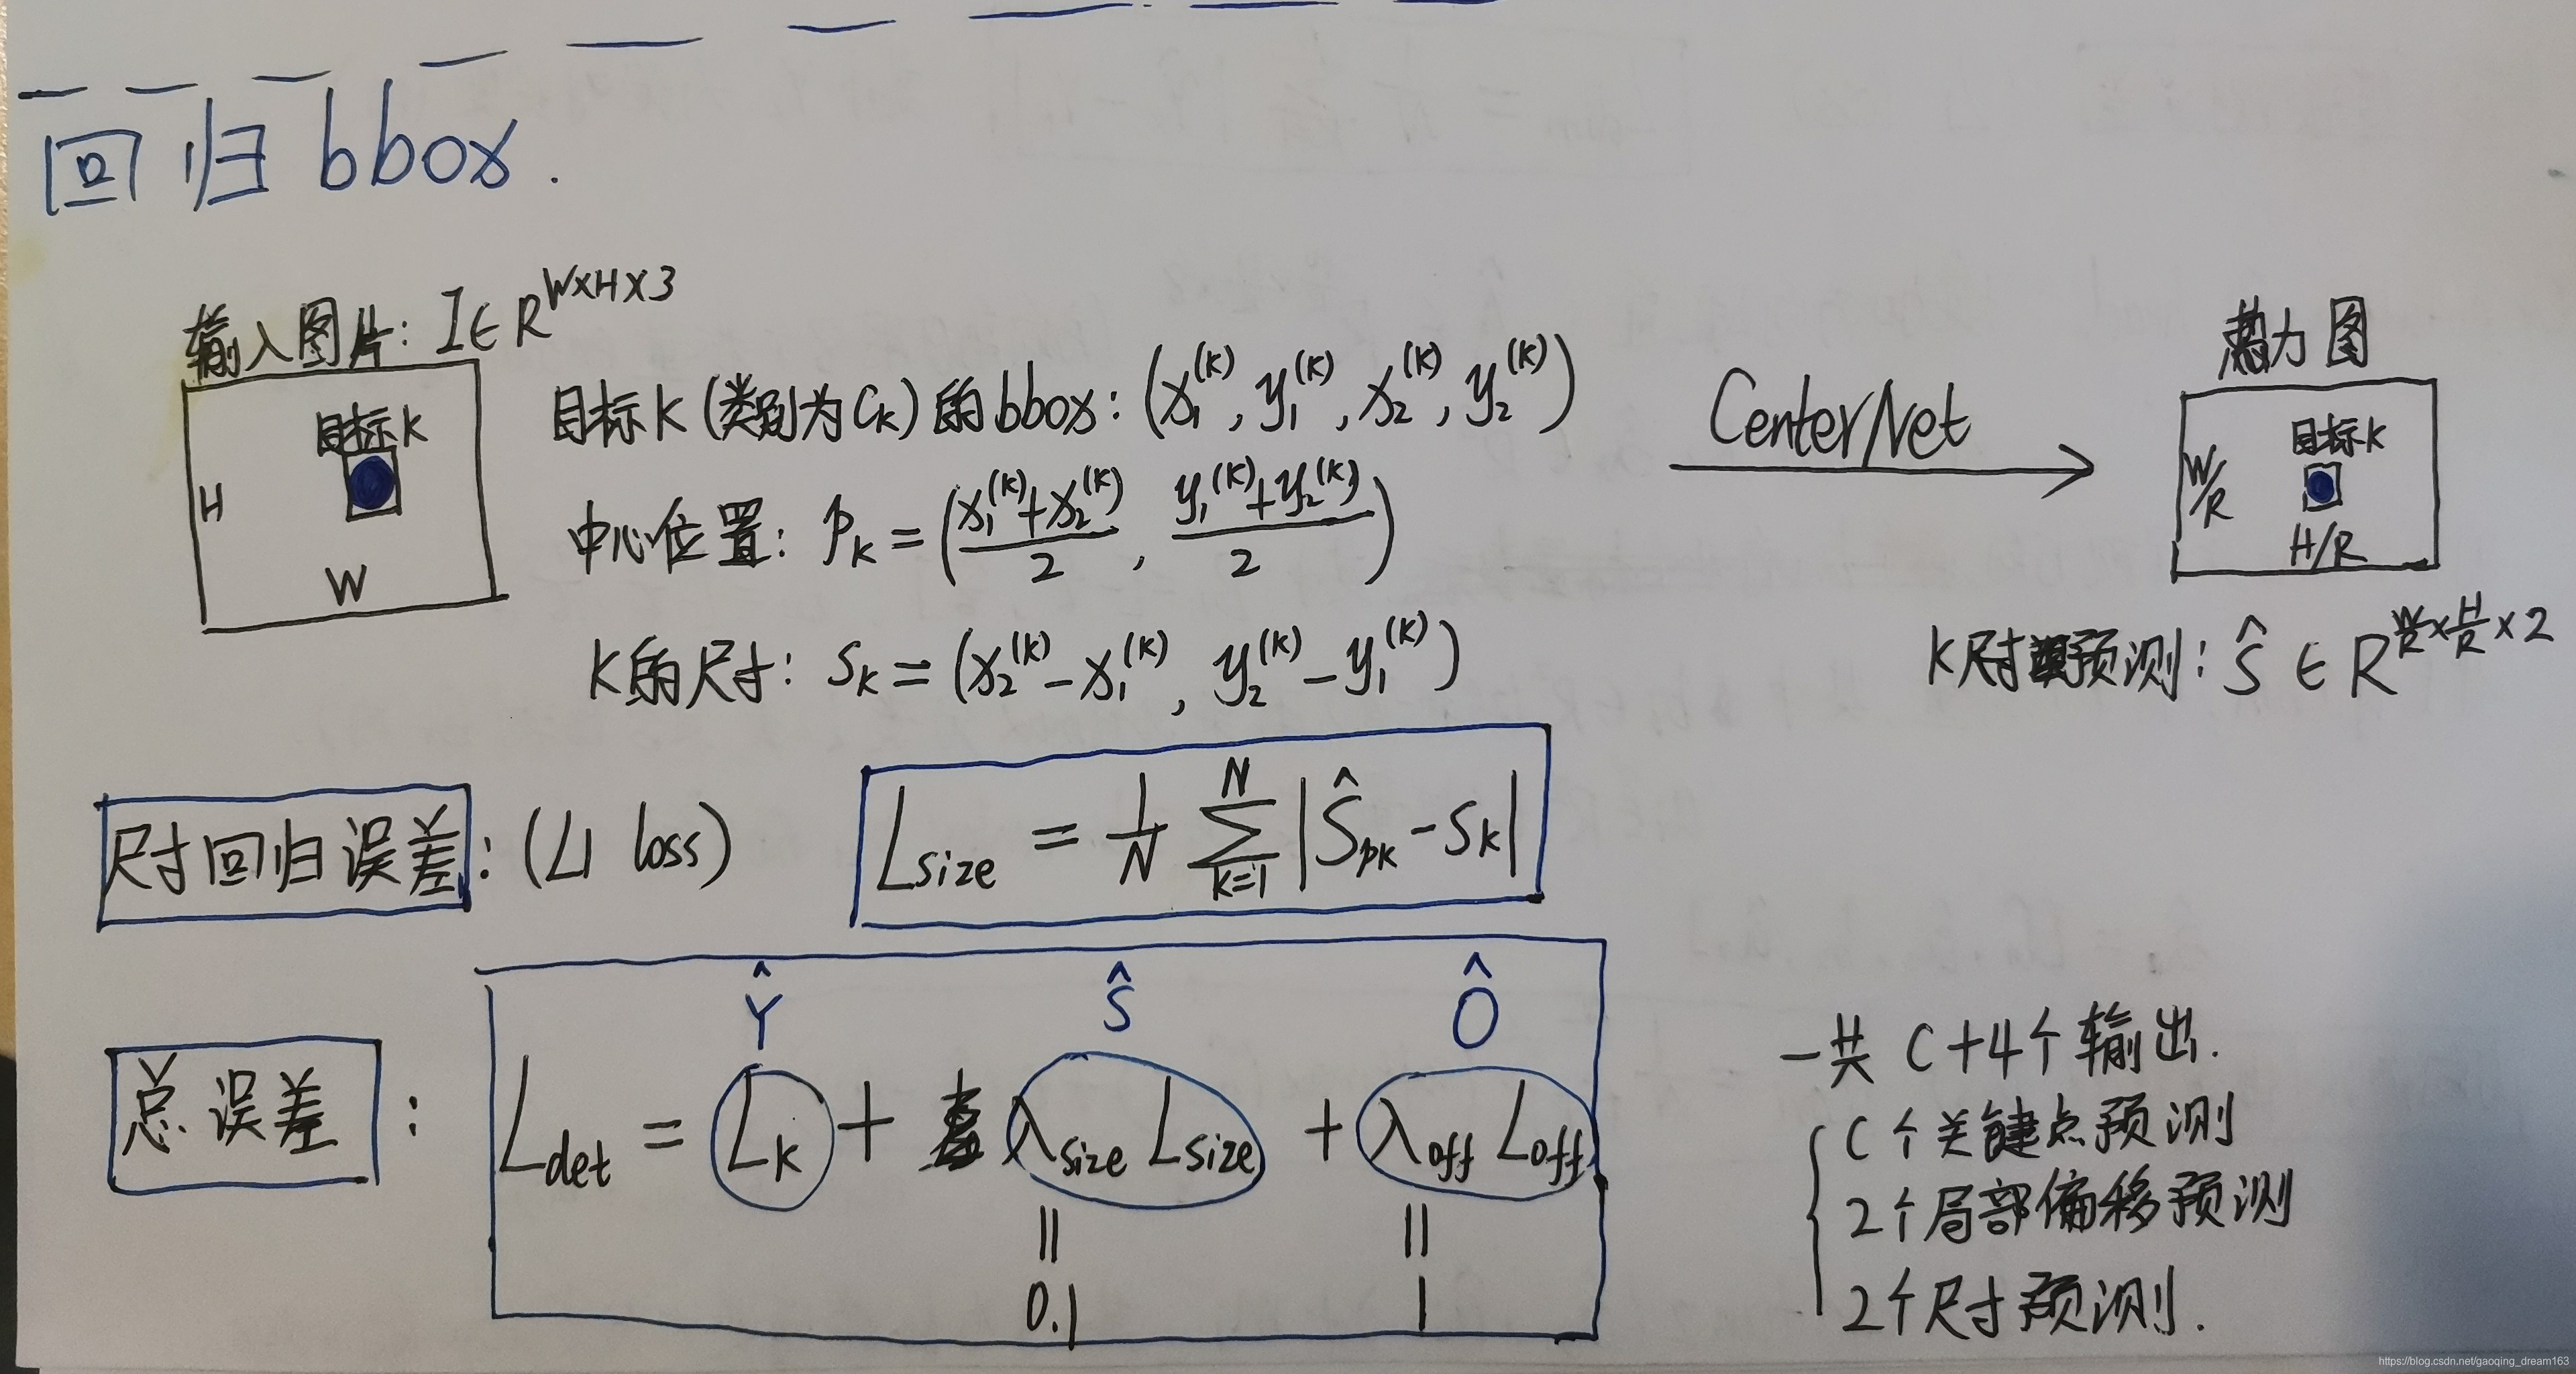 回归 bbox.
输入图片: I ∈ R^{W×H×3}
目标K
H
W
目标K (类别为 C_K) 的 bbox: (x_1^{(K)}, y_1^{(K)}, x_2^{(K)}, y_2^{(K)})
中心位置: p_K = ( (x_1^{(K)}+x_2^{(K)})/2 , (y_1^{(K)}+y_2^{(K)})/2 )
K的尺寸: S_K = (x_2^{(K)}-x_1^{(K)}, y_2^{(K)}-y_1^{(K)})
CenterNet
热力图
目标K
W/R
H/R
K尺寸预测: Ŝ ∈ R^{W/R×H/R×2}
尺寸回归误差: (L1 loss)
L_size = 1/N ∑_{k=1}^{N} |Ŝ_{pK} - S_K|
Ŷ Ŝ Ô
总误差: L_det = L_K + λ_size L_size + λ_off L_off
|| ||
0.1 1
一共 C+4个输出.
C个关键点预测
2个局部偏移预测
2个尺寸预测.
https://blog.csdn.net/gaoqing_dream163